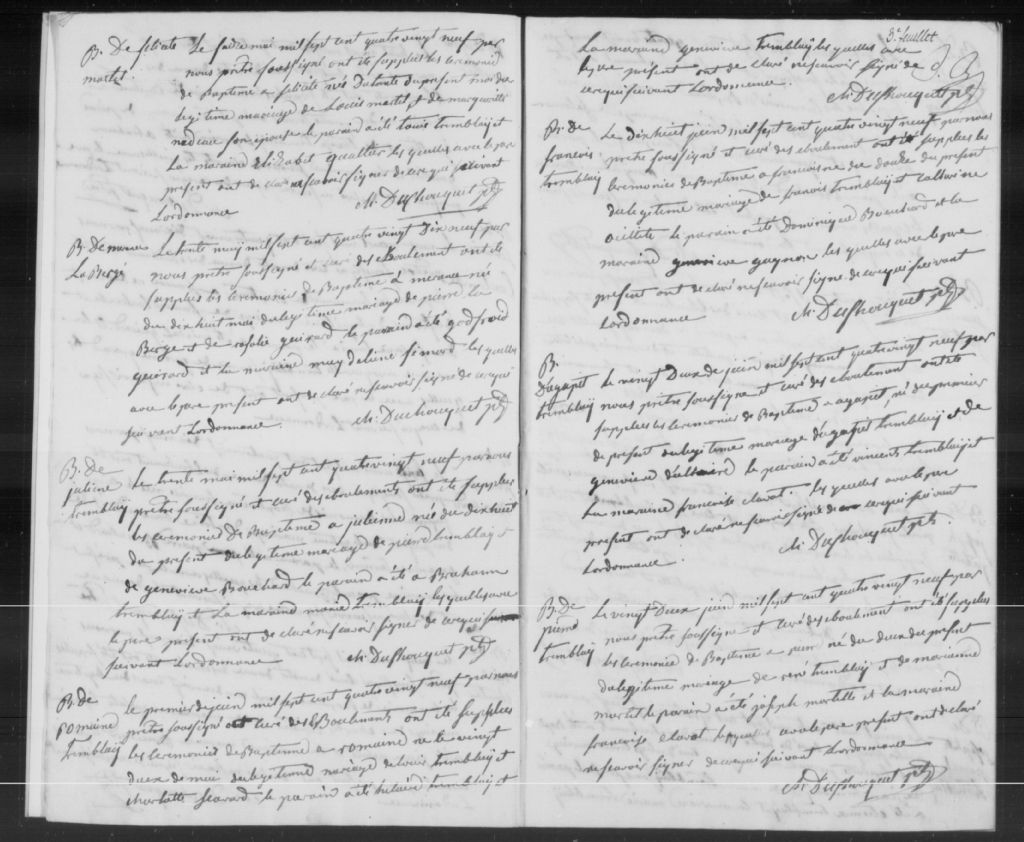 B. De felicite Le sedre mai mil sept cent quatre vingt neuf par
martel. nous prêtre soussigné ont ete supplies les ceremonies
de Baptême a felicité née du trente du present mois du
legitime mariage de Louis martel et de margueritte
nadeau son epouse le parain a été Louis tremblay et
La maraine Elizabet gaultier les quelles avec le pere
present ont declaré ne scavoir signer de ce que suivant
Lordonnance M. Dushouquet ptr
B. De marie Le trente may mil sept cent quatre vingt Dix neuf par
La Bergé nous prêtre soussigné et curé des eboulement ont ete
supplies les ceremonies de Baptême à née
du dix huit mai du legitime mariage de pierre la
Berge et de rosalie guerard le parain a été godfroid
guérard et la maraine magdeleine simard les quelles
avec le pere present ont declaré ne scavoir signé de ce qui
suivant Lordonnance. M. Dushouquet ptr
B. De Le trente mai mil sept cent quatre vingt neuf par nous
juliene prêtre soussigné et curé des eboulements ont ete supplies
tremblay les ceremonies de Baptême a julienne née du dix huit
du present du legitime mariage de pierre tremblay et
de genevieve Bouchard le parain a été abraham
tremblay et La maraine marie tremblay les quelles avec
le pere present ont declaré ne scavoir signer de ce qui
suivant Lordonnance M. Dushouquet ptr
B. de le premier de juin mil sept cent quatre vingt neuf par nous
romaine prêtre soussigné et curé des Eboulements ont été supplies
tremblay les ceremonies de Baptême a romaine née le vingt
deux de mai du legitime mariage de louis tremblay et
charlotte savard le parain a été hilaire tremblay et
3e. feuillet
La maraine genevieve tremblay les quelles avec
le pere présent ont declaré ne scavoir signé de
ce qui suivant Lordonnance. M. Dushouquet ptr
B. De Le dix huit juin mil sept cent quatre vingt neuf par nous
francois prêtre soussigné et curé des eboulement ont été supplies les
tremblay ceremonies de Baptême a francois né du douze du present
du legitime mariage de francois tremblay et catherine
ouillette le parain a été Dominique Bouchard et la
maraine genevieve gagnon les quelles avec le pere
present ont declaré ne scavoir signé de ce qui suivant
Lordonnance M. Dushouquet ptr
B.
D'agapit Le vingt Deux de juin mil sept cent quatre vingt neuf par
tremblay nous prêtre soussigné et curé des eboulement ont ete
supplies les ceremonies de Baptême a agapit, né du premier
de present du legitime mariage d'agapit tremblay et de
genevieve le parain a été vincent tremblay et
La maraine francoise clavet. les quelles avec le pere
present ont declaré ne scavoir signé de ce qui suivant
Lordonnance. M. Dushouquet ptr.
B. De Le vingt Deux juin mil sept cent quatre vingt neuf par
pierre nous prêtre soussigné et curé des eboulement ont été supplies
tremblay les ceremonies de Baptême a pierre né du deux du present
du legitime mariage de réné tremblay et de marianne
martel le parain a été joseph martelle et la maraine
francoise clavet les quelles avec le pere present ont declaré
ne scavoir signer de ce qui suivant Lordonnance
M. Dushouquet ptr